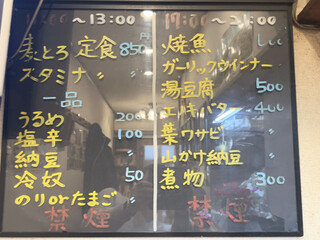 ～13:00
麦とろ定食 850円
スタミナ 〃
一品
うるめ 200
塩辛 100
納豆 〃
冷奴 50
のりorたまご 〃
禁煙
17:00～21:00
焼魚
ガーリックウインナー
湯豆腐 500
エノキバター 400
葉ワサビ 〃
山かけ納豆 〃
煮物 300
禁煙